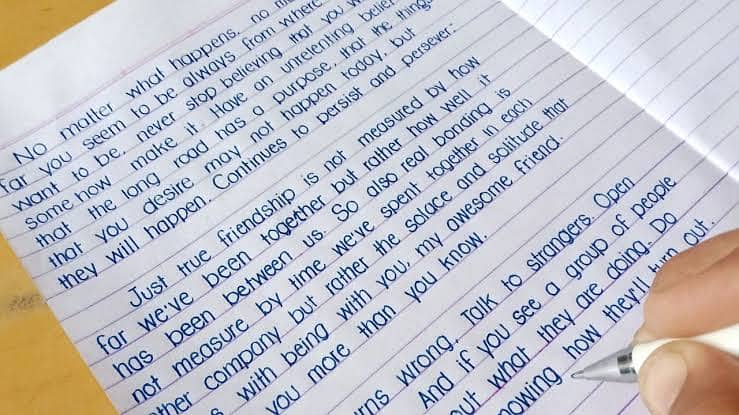 No matter what happens, no
far you seem to be always from where
want to be, never stop believing that you
some how make it. Have an unrelenting belief
that the long road has a purpose, that the things
that you desire may not happen today, but
they will happen. Continues to persist and persever.
Just true friendship is not measured by how
far we've been together but rather how well it
has been between us. So also real bonding is
not measure by time we've spent together in each
ther company but rather the solace and solitude that
s with being with you, my awesome friend.
you more than you know.
rns wrong. Talk to strangers. Open
And if you see a group of people
out what they are doing. Do
nowing how they'll turn out.